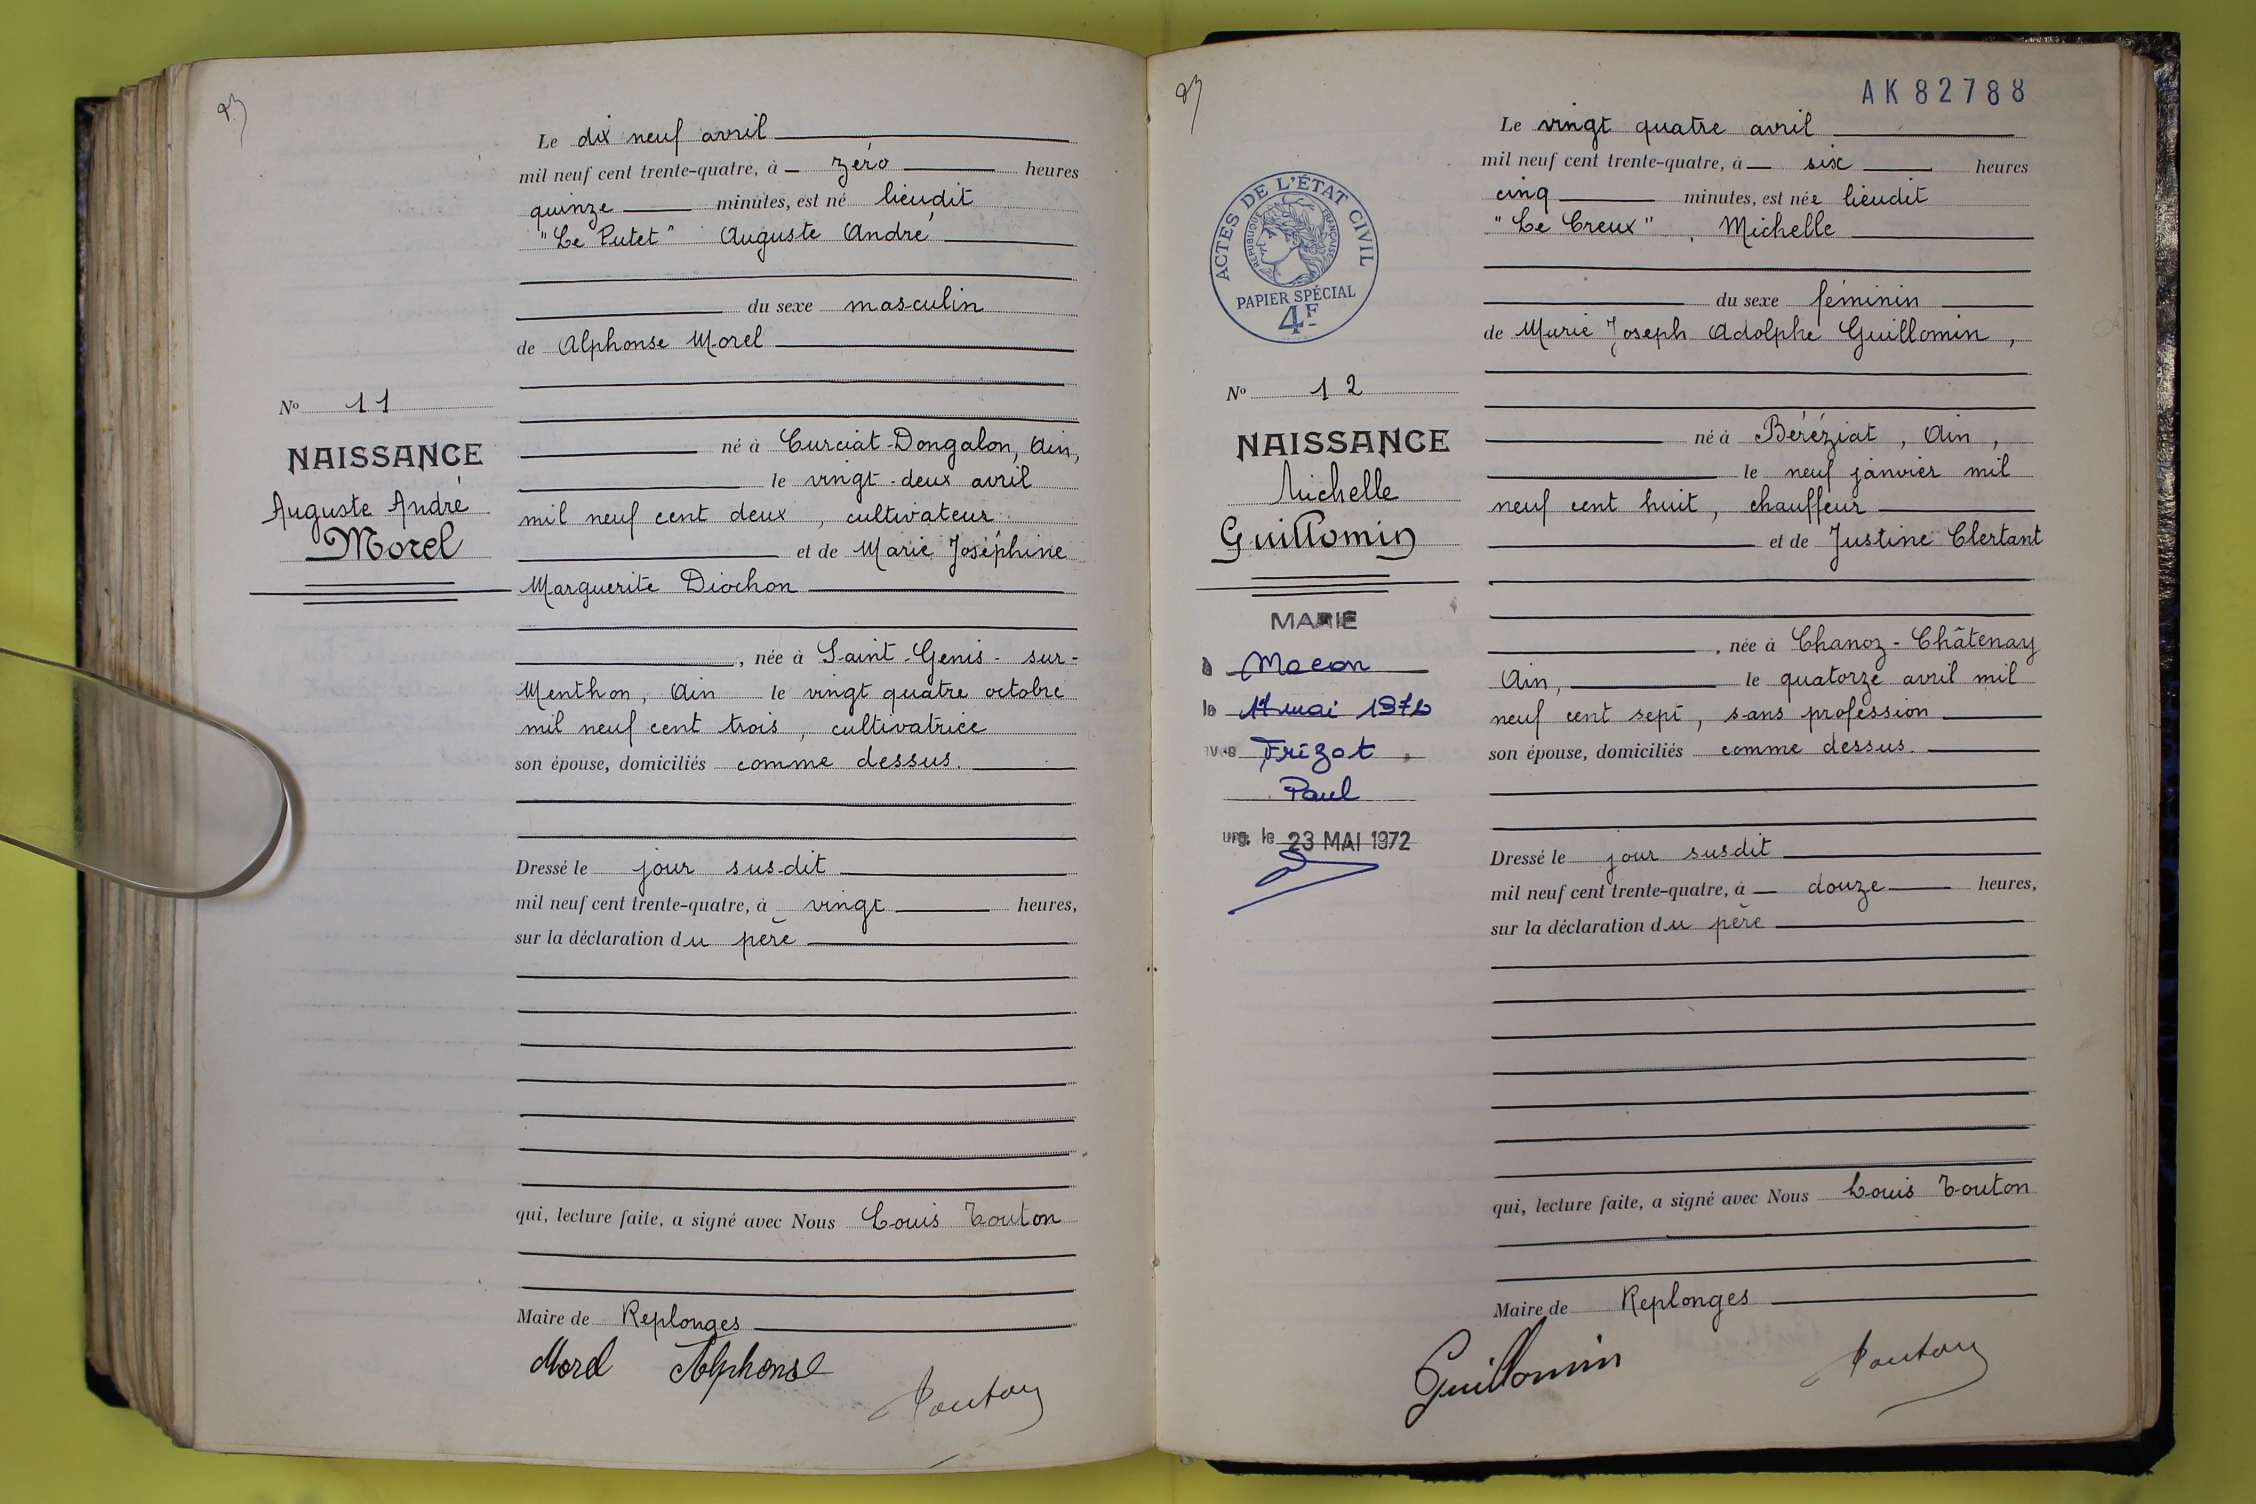 Le dix neuf avril
mil neuf cent trente-quatre, à zéro heures
quinze minutes, est né lieudit
"Le Putet" Auguste André
du sexe masculin
de Alphonse Morel
né à Curciat-Dongalon, Ain,
le vingt-deux avril
mil neuf cent deux, cultivateur
et de Marie Joséphine
Marguerite Diochon
, née à Saint-Genis-sur-
Menthon, Ain le vingt quatre octobre
mil neuf cent trois, cultivatrice
son épouse, domiciliés comme dessus.
Dressé le jour susdit
mil neuf cent trente-quatre, à vingt heures,
sur la déclaration du père
qui, lecture faite, a signé avec Nous Louis Touton
Maire de Replonges
Morel Alphonse
Touton
No 11
NAISSANCE
Auguste André
Morel
AK 82788
Le vingt quatre avril
mil neuf cent trente-quatre, à six heures
cinq minutes, est née lieudit
"Le Creux", Michelle
du sexe féminin
de Marie Joseph Adolphe Guillomin,
né à Béréziat, Ain,
le neuf janvier mil
neuf cent huit, chauffeur
et de Justine Clertant
, née à Chanoz-Châtenay
Ain, le quatorze avril mil
neuf cent sept, sans profession
son épouse, domiciliés comme dessus.
Dressé le jour susdit
mil neuf cent trente-quatre, à douze heures,
sur la déclaration du père
qui, lecture faite, a signé avec Nous Louis Touton
Maire de Replonges
Guillomin
Touton
ACTES DE L'ÉTAT CIVIL
RÉPUBLIQUE FRANÇAISE
PAPIER SPÉCIAL
4F
No 12
NAISSANCE
Michelle
Guillomin
MARIE
à Macon
le 17 mai 1972
avec Frizot
Paul
le 23 MAI 1972